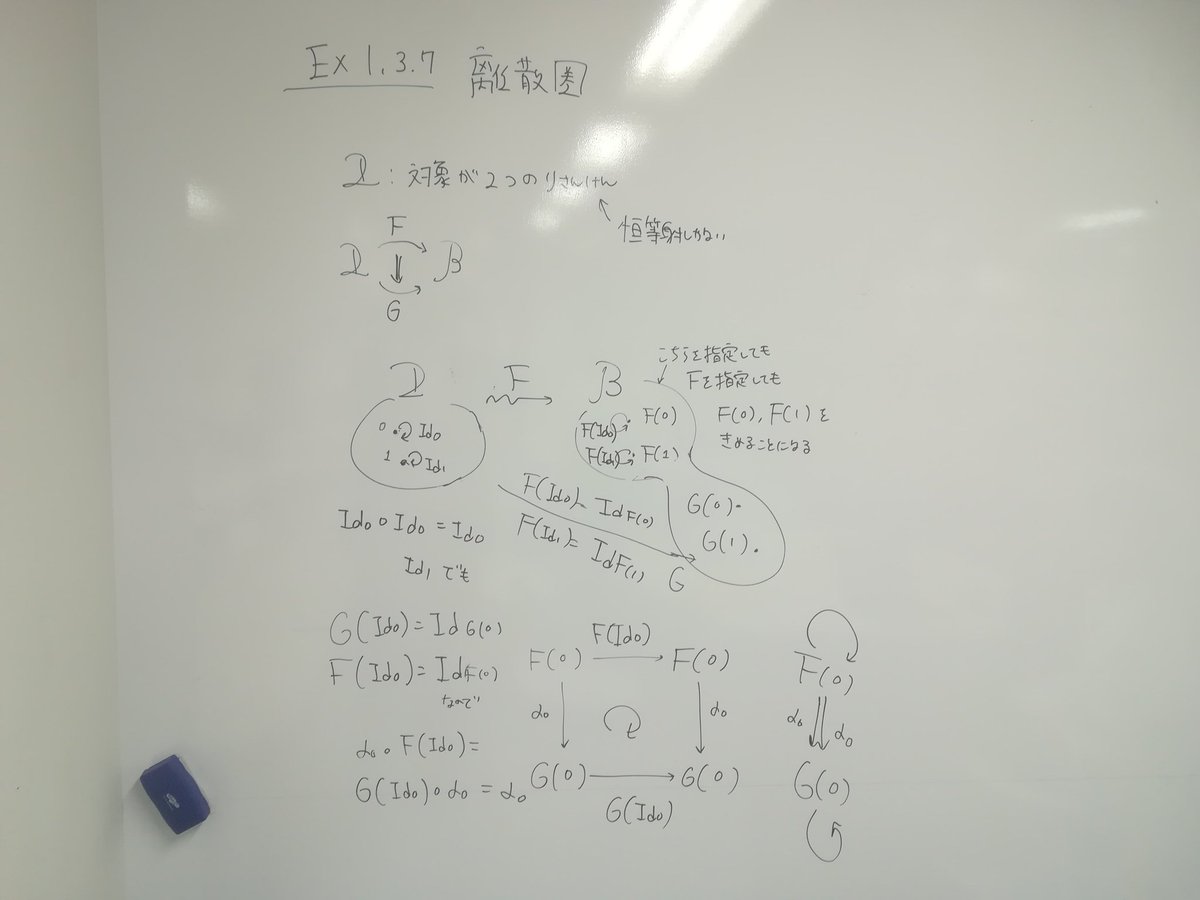 Ex 1.3.7 離散圏
2 : 対象が2つのりさんけん
恒等射しかない
F
2 ⇓ B
G
2 F B
こちらを指定しても
Fを指定しても
F(0), F(1)を
きめることになる
0 Id₀
1 Id₁
F(Id₀) F(0)
F(Id₁) F(1)
G(0).
G(1).
F(Id₀)= Id F(0)
F(Id₁)= Id F(1)
G
Id₀∘Id₀ = Id₀
Id₁でも
G(Id₀) = Id G(0)
F(Id₀) = Id F(0)
なので
α₀∘F(Id₀) =
G(Id₀)∘α₀ = α₀
F(Id₀)
F(0) → F(0)
α₀ α₀
G(0) → G(0)
G(Id₀)
F(0)
α₀ α₀
G(0)